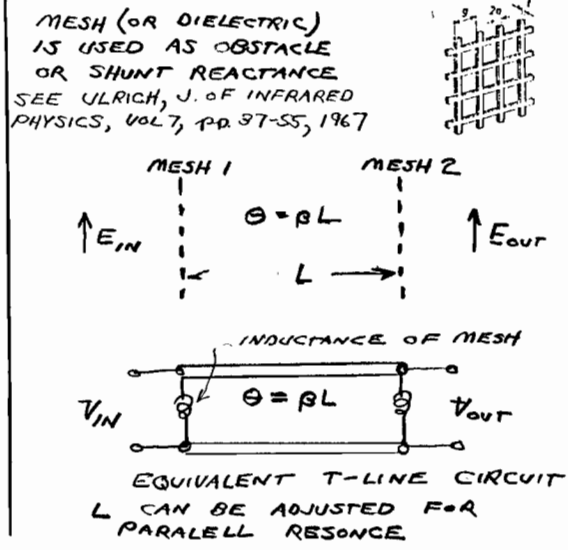 MESH (OR DIELECTRIC)
IS USED AS OBSTACLE
OR SHUNT REACTANCE
SEE ULRICH, J. OF INFRARED
PHYSICS, VOL 7, pp. 37-55, 1967
g 2a
MESH 1 MESH 2
Θ = βL
E_IN E_OUT
L
INDUCTANCE OF MESH
V_IN Θ = βL V_OUT
EQUIVALENT T-LINE CIRCUIT
L CAN BE ADJUSTED FOR
PARALELL RESONCE